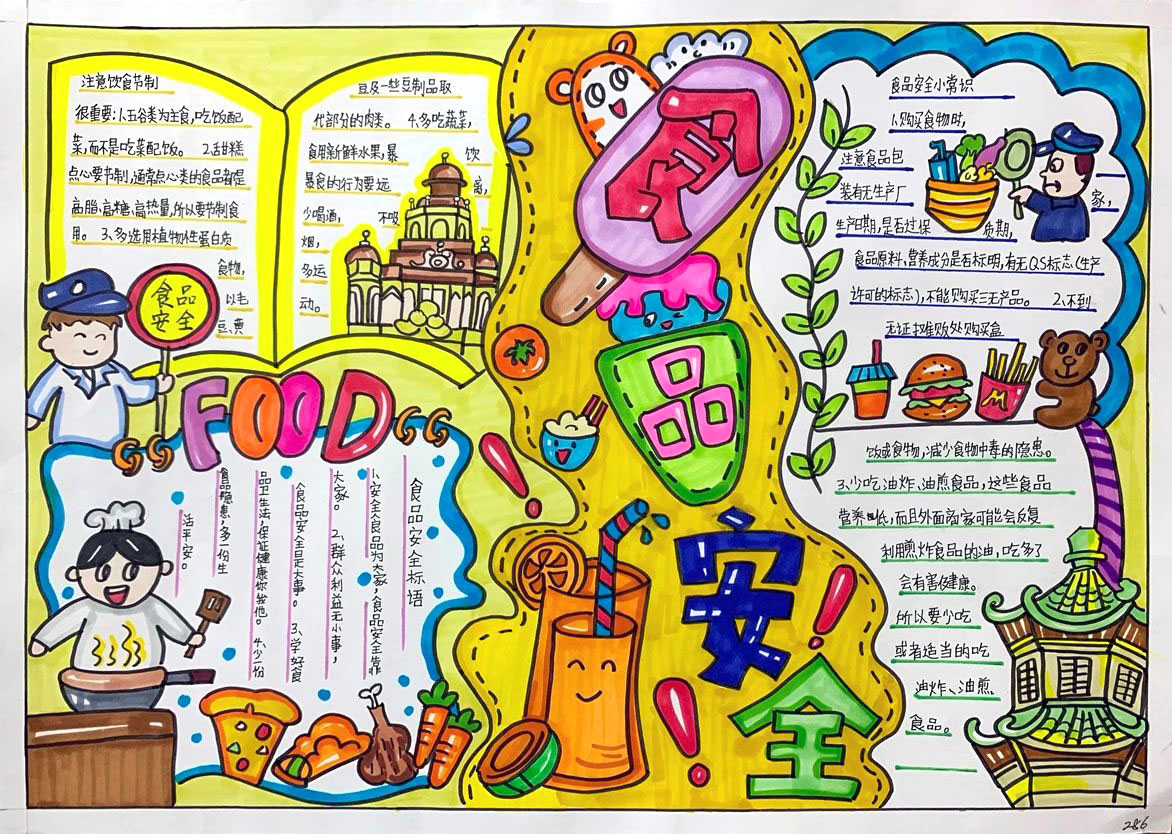 注意饮食节制
很重要:1.以五谷类为主食,吃饭配
菜,而不是吃菜配饭。 2.甜糕
点心要节制,通常点心类的食品都是
高脂、高糖、高热量,所以要节制食
用。 3.多选用植物性蛋白质
食物,
以毛
豆、黄
豆及一些豆制品取
代部分的肉类。 4.多吃蔬菜,
食用新鲜水果,暴 饮
暴食的行为要远 离,
少喝酒, 不吸
烟,
多运
动。
食品
安全
食
品
安
全
FOOD
食品安全标语
1.安全食品为大家,食品安全靠
大家。 2.群众利益无小事,
食品安全是大事。 3.学好食
品卫生法,保证健康你我他。 4.少一份
食品隐患,多一份生
活平安。
食品安全小常识
1.购买食物时,
注意食品包
装有无生产厂 家,
生产日期,是否过保 质期,
食品原料、营养成分是否标明,有无QS标志(生产
许可的标志),不能购买三无产品。 2.不到
无证摊贩处购买盒
M
饭或食物,减少食物中毒的隐患。
3.少吃油炸、油煎食品,这些食品
营养低,而且外面商家可能会反复
利用煎炸食品的油,吃多了
会有害健康。
所以要少吃
或者适当的吃
油炸、油煎
食品。
286